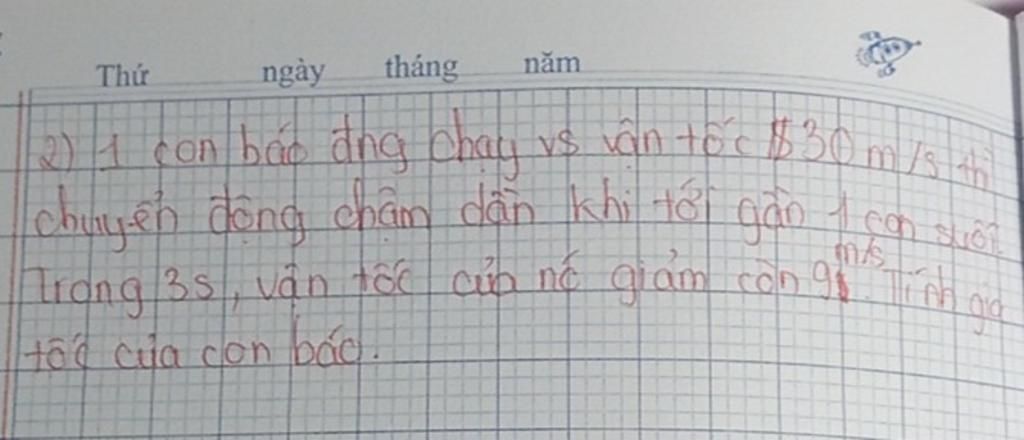 Thứ ngày tháng năm
2) 1 con báo đng chạy vs vận tốc 30 m/s thì
chuyển động chậm dần khi tới gần 1 con suối.
Trong 3s, vận tốc của nó giảm còn 9 m/s. Tính gia
tốc của con báo.